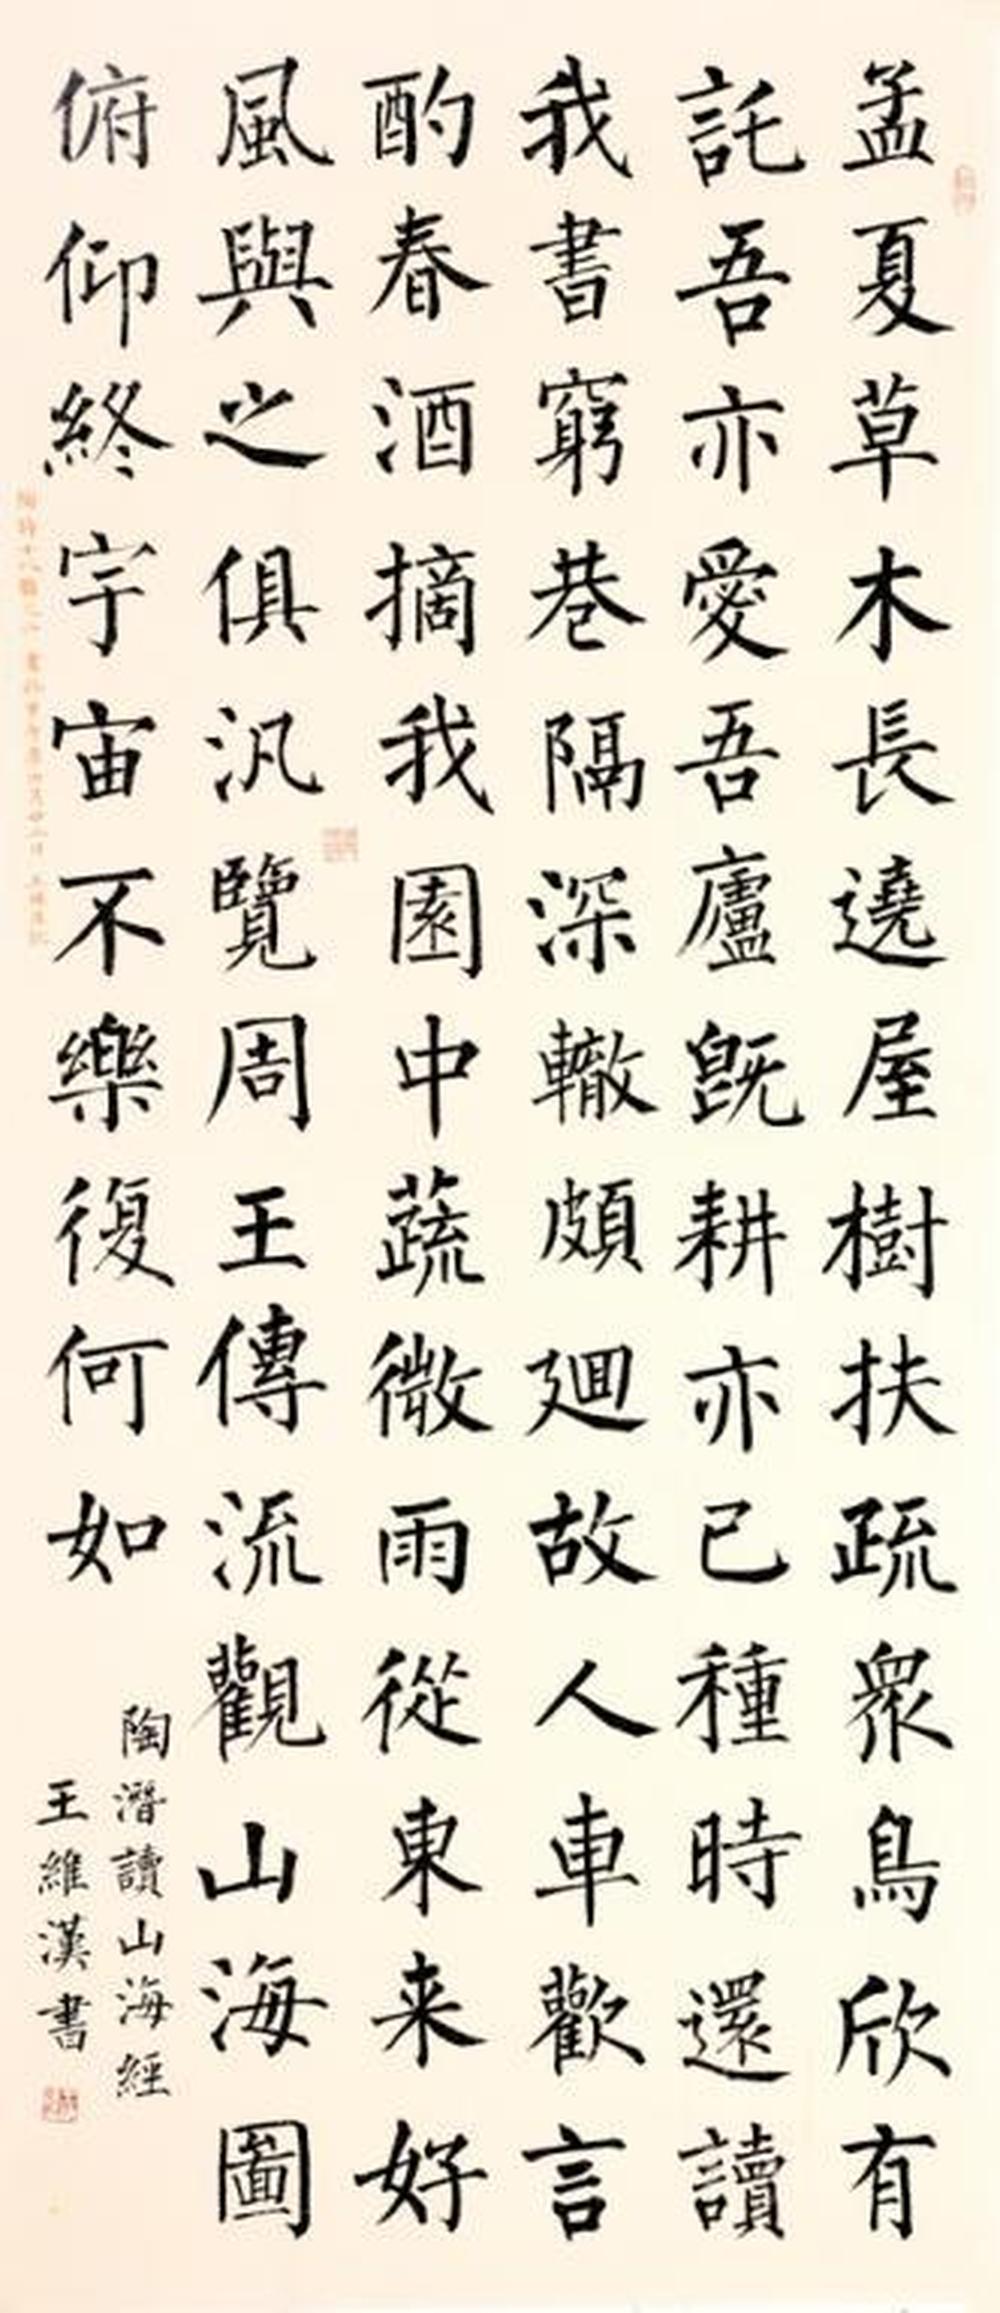 孟夏草木長遶屋樹扶疏衆鳥欣有
託吾亦愛吾廬既耕亦已種時還讀
我書窮巷隔深轍頗廻故人車歡言
酌春酒摘我園中蔬微雨從東来好
風與之俱汎覽周王傳流觀山海圖
俯仰終宇宙不樂復何如
陶潛讀山海經
王維漢書